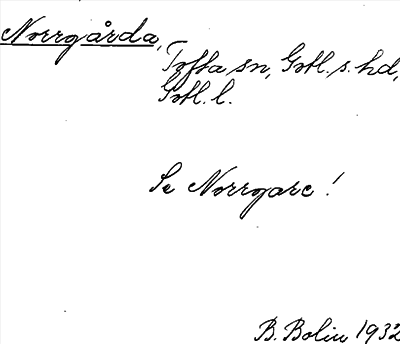 Norrgårda,
Tofta sn, Gotl. s. hd,
Gotl. l.
Se Norrgarc!
B. Bolin 1932